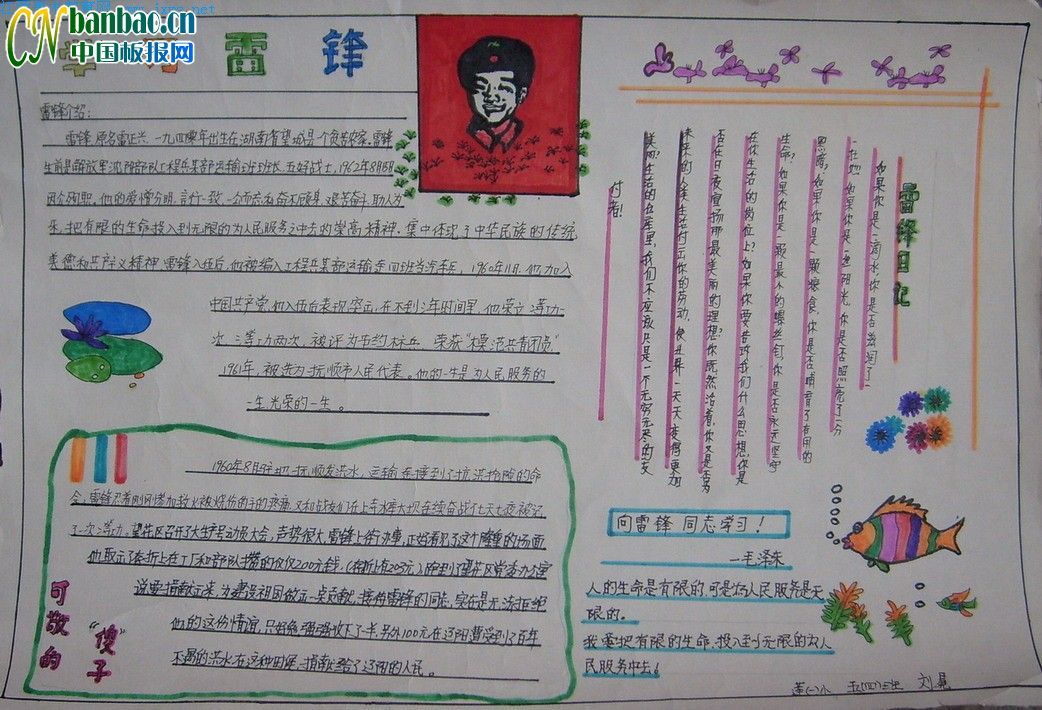 www.jxrs.net
CN banbao.cn
中国板报网
学习雷锋
雷锋介绍：
雷锋，原名雷正兴，一九四零年出生在湖南省望城县一个贫苦农家，雷锋
生前是解放军沈阳部队工程兵某部运输班班长、五好战士，1962年8月15日
因公殉职。他的爱憎分明、言行一致、公而忘私、奋不顾身、艰苦奋斗、助人为
乐，把有限的生命投入到无限的为人民服务之中去的崇高精神，集中体现了中华民族的传统
美德和共产主义精神。雷锋入伍后，他被编入工程兵某部运输连四班当汽车兵，1960年11月他加入
中国共产党。他入伍后表现突出，在不到3年时间里，他荣立二等功一
次，三等功两次，被评为节约标兵，荣获“模范共青团员”
1961年，被选为抚顺市人民代表。他的一生是为人民服务的
一生光荣的一生。
可敬的“傻”子
1960年8月驻地抚顺发洪水，运输连接到了抗洪抢险的命
令。雷锋忍着刚刚参加救火被烧伤的手的疼痛，又和战友们在上寺水库大坝连续奋战七天七夜，被记
了一次二等功。望花区召开了大生产号召动员大会，声势很大，雷锋上街办事，正好看见了这个隆重的场面
他取出了存折上在工厂和部队攒的仅仅200元钱（存折上有203元）跑到了望花区党委办公室
说要捐献出来，为建设祖国做点一点贡献，接待雷锋的同志，实在是无法拒绝
他的这份情谊，只好勉强收下了一半。另外100元在辽阳遭受到了百年
不遇的洪水，在这种时候，捐献给了辽阳的人民。
雷锋日记
如果你是一滴水，你是否滋润了一
寸土地？如果你是一缕阳光，你是否照亮了一分
黑暗？如果你是一颗粮食，你是否哺育了有用的
生命？如果你是一颗最小的螺丝钉，你是否永远坚守
在你生活的岗位上？如果你要告诉我们什么思想，你是
否在日夜宣扬那最美丽的理想？你既然活着，你又是否为
未来的人类生活付出你的劳动，使世界一天天变得更加
美丽？生活的仓库里，我们不应该只是一个无穷无尽的支
付者！
向雷锋同志学习！
—毛泽东
人的生命是有限的，可是为人民服务是无
限的。
我要把有限的生命，投入到无限的为人
民服务中去！
莲（一）小 五（四）班 刘晁